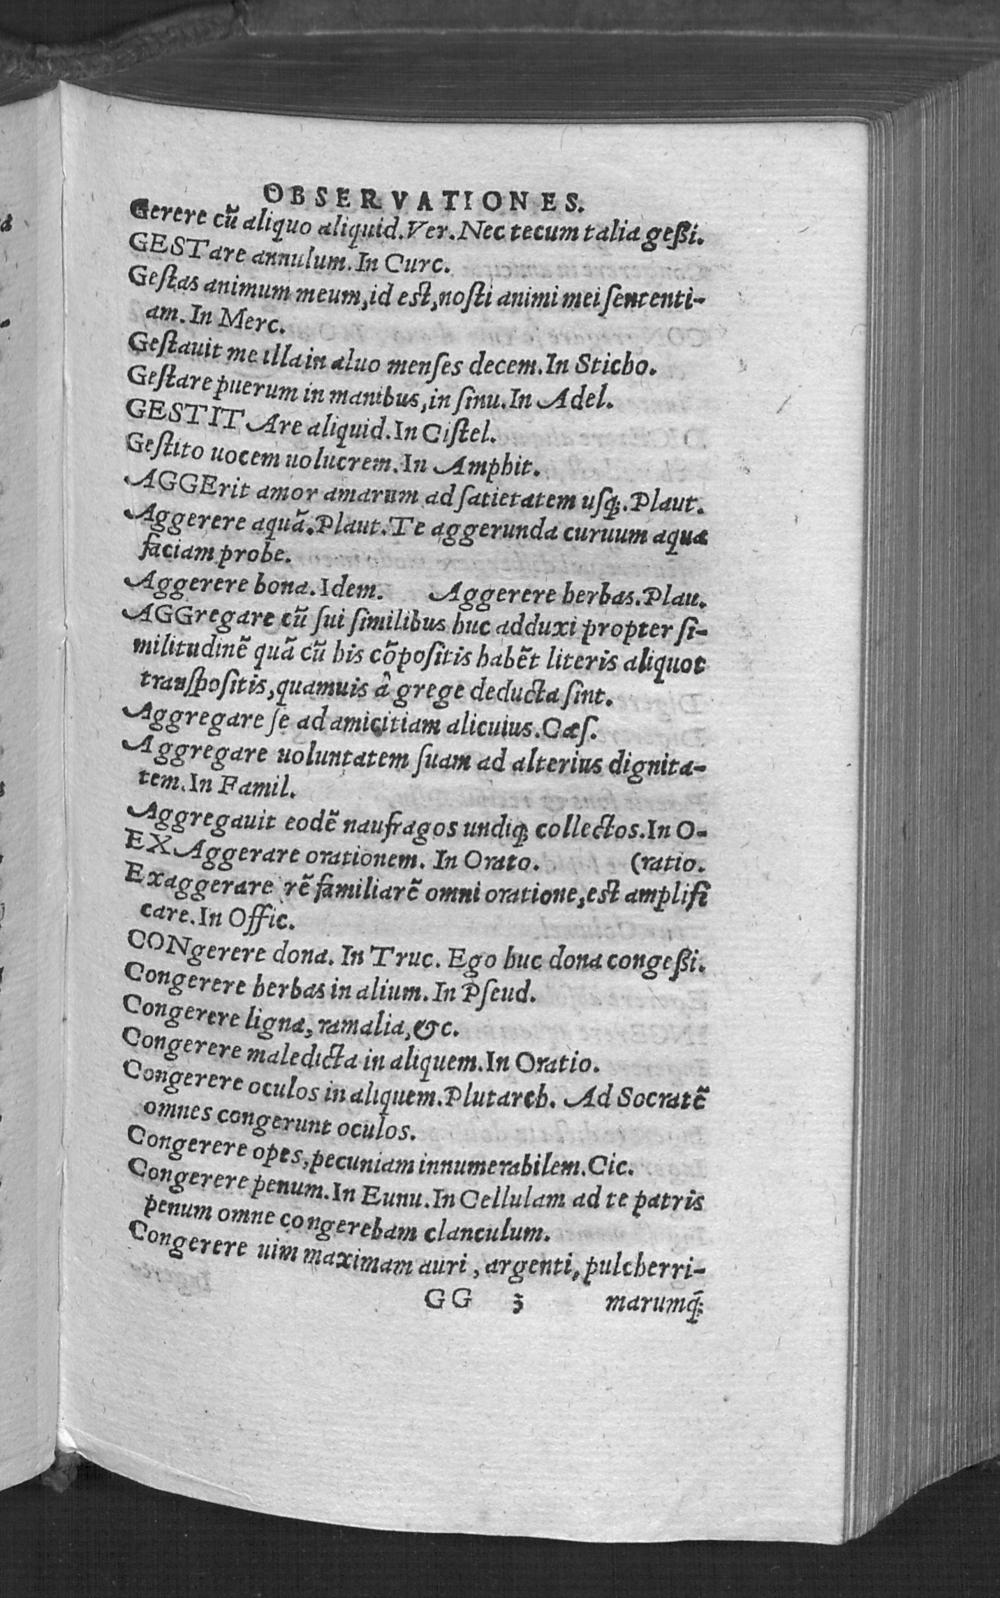 OBSERVATIONES.
Gerere cū aliquo aliquid. Ver. Nec tecum talia geßi.
GESTare annulum. In Curc.
Gestas animum meum, id est, nosti animi mei sententi-
am. In Merc.
Gestauit me illa in aluo menses decem. In Sticho.
Gestare puerum in manibus, in sinu. In Adel.
GESTITAre aliquid. In Cistel.
Gestito uocem uolucrem. In Amphit.
AGGErit amor amarum ad satietatem usq;. Plaut.
Aggerere aquā. Plaut. Te aggerunda curuum aqua
faciam probe.
Aggerere bona. Idem. Aggerere herbas. Plau.
AGGregare cū sui similibus huc adduxi propter si-
militudinē quā cū his cōpositis habēt literis aliquot
transpositis, quamuis â grege deducta sint.
Aggregare se ad amicitiam alicuius. Cæs.
Aggregare uoluntatem suam ad alterius dignita-
tem. In Famil.
Aggregauit eodē naufragos undiq; collectos. In O-
EXAggerare orationem. In Orato. (ratio.
Exaggerare rē familiarē omni oratione, est amplifi
care. In Offic.
CONgerere dona. In Truc. Ego huc dona congeßi.
Congerere herbas in alium. In Pseud.
Congerere ligna, ramalia, &c.
Congerere maledicta in aliquem. In Oratio.
Congerere oculos in aliquem. Plutarch. Ad Socratē
omnes congerunt oculos.
Congerere opes, pecuniam innumerabilem. Cic.
Congerere penum. In Eunu. In Cellulam ad te patris
penum omne congerebam clanculum.
Congerere uim maximam auri, argenti, pulcherri-
GG 3 marumq́;